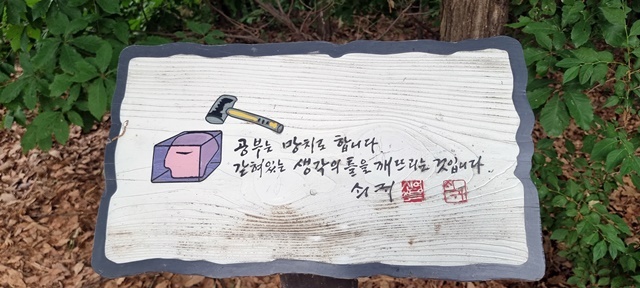 공부는 망치로 합니다.
갇혀있는 생각의 틀을 깨뜨리는 것입니다.
쇠귀